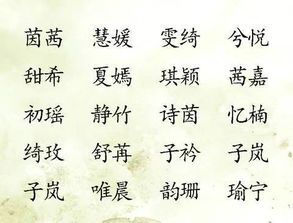 茵茜 慧媛 雯绮 兮悦
甜希 夏嫣 琪颖 茜嘉
初瑶 静竹 诗茵 忆楠
绮玫 舒苒 子衿 子岚
子岚 唯晨 韵珊 瑜宁